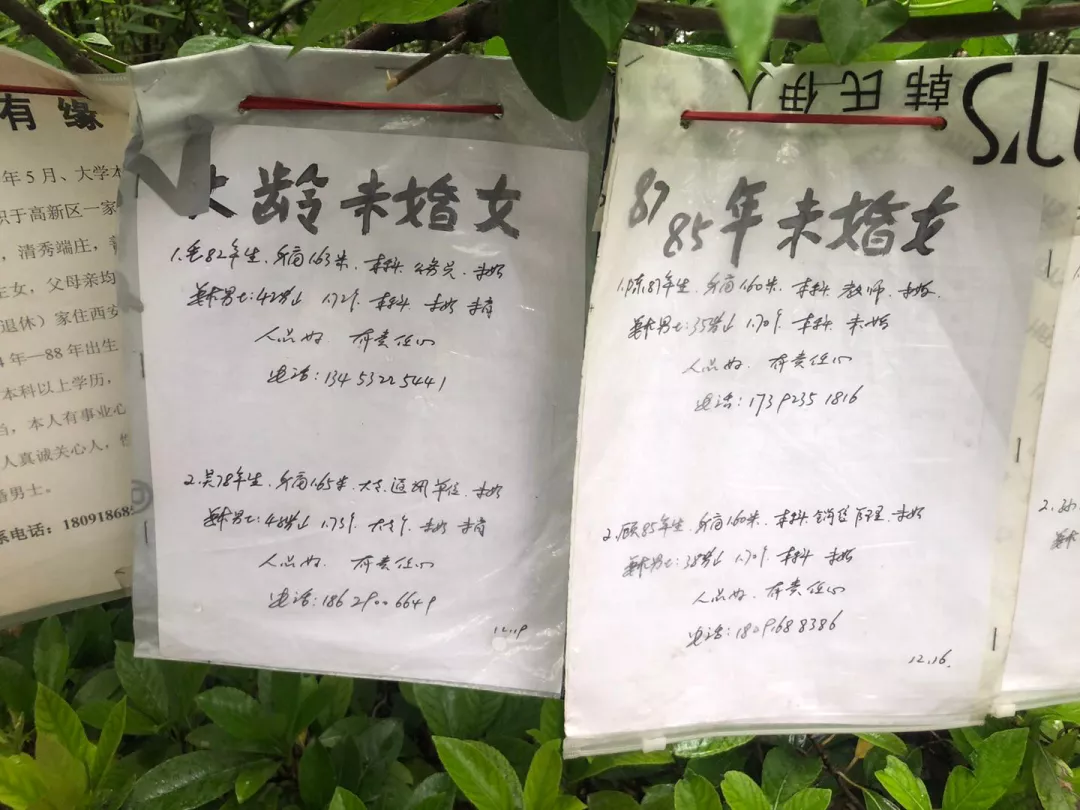 有 缘
年5月、大学本
职于高新区一家
，清秀端庄，善
生女，父母亲均
退休）家住西安
4年—88年出生
本科以上学历，
当，本人有事业心
人真诚关心人，他
婚男士。
系电话：18091868
大龄未婚女
1.毛82年生、身高1.63米、本科、公务员、未婚
要求男士:42岁以 1.72个、本科、未婚 未育
人品好、有责任心
电话:134 5322 5441
2.吴78年生、身高1.65米、大专、通讯单位、未婚
要求男士:48岁以 1.75个、大专个、未婚 未育
人品好、有责任心
电话:186 2900 6649
12.19
87
85年未婚女
1.陈87年生、身高1.60米、本科、教师、未婚.
要求男士:35岁以 1.70个、本科、未婚
人品好、有责任心
电话:173 9235 1816
2.顾85年生、身高1.60米、本科、销售经理、未婚
要求男士:38岁以 1.70个、本科、未婚
人品好、有责任心
电话:1809168 8386
12.16.
韩氏伊
2.孙
要求